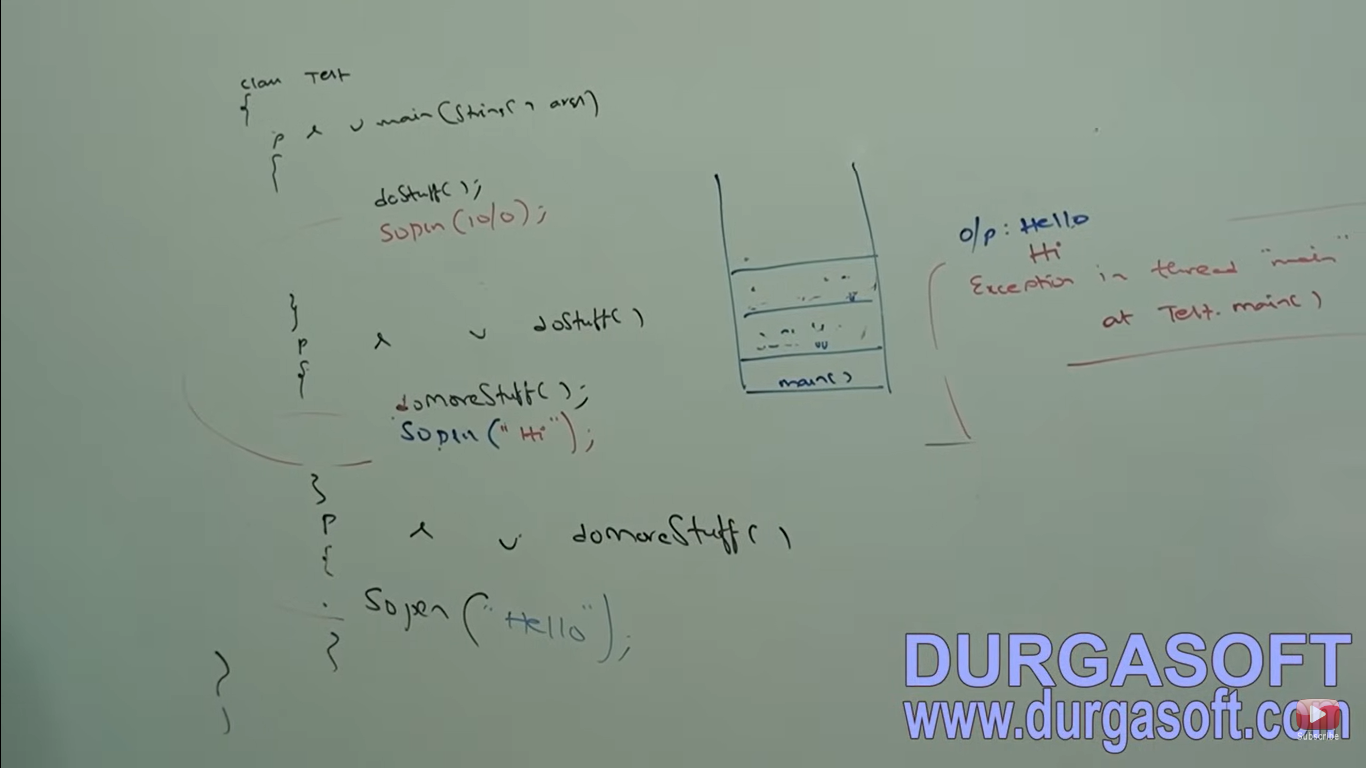 class Test
{
p s v main(String[] args)
{
doStuff();
Sopln(10/0);
}
p s v doStuff()
{
doMoreStuff();
Sopln("Hi");
}
p s v doMoreStuff()
{
Sopln("Hello");
}
}
main()
o/p: Hello
Hi
Exception in thread "main"
at Test.main()
DURGASOFT
www.durgasoft.com
Subscribe